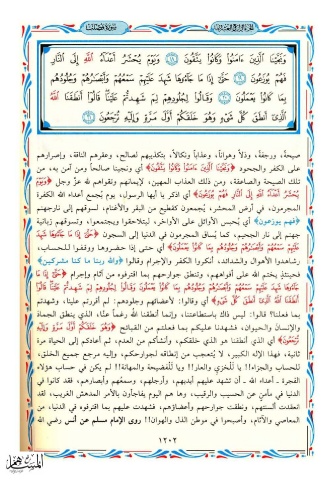 سورة فصلت
وَنَجَّيْنَا الَّذِينَ ءَامَنُوا وَكَانُوا يَتَّقُونَ ﴿١٨﴾ وَيَوْمَ يُحْشَرُ أَعْدَاءُ اللَّهِ إِلَى النَّارِ
فَهُمْ يُوزَعُونَ ﴿١٩﴾ حَتَّىٰ إِذَا مَا جَاءُوهَا شَهِدَ عَلَيْهِمْ سَمْعُهُمْ وَأَبْصَارُهُمْ وَجُلُودُهُمْ
بِمَا كَانُوا يَعْمَلُونَ ﴿٢٠﴾ وَقَالُوا لِجُلُودِهِمْ لِمَ شَهِدتُّمْ عَلَيْنَا قَالُوا أَنطَقَنَا اللَّهُ
الَّذِي أَنطَقَ كُلَّ شَيْءٍ وَهُوَ خَلَقَكُمْ أَوَّلَ مَرَّةٍ وَإِلَيْهِ تُرْجَعُونَ ﴿٢١﴾
صيحةً، ورجفةً، وذلاً وهواناً، وعذاباً ونكالاً، بتكذيبهم لصالح، وعقرهم الناقة، وإصرارهم
على الكفر والجحود ﴿وَنَجَّيْنَا الَّذِينَ ءَامَنُوا وَكَانُوا يَتَّقُونَ﴾ أي ونجينا صالحاً ومن آمن به، من
تلك الصيحة والصاعقة، ومن ذلك العذاب المهين، لإيمانهم وتقواهم لله عز وجل ﴿وَيَوْمَ
يُحْشَرُ أَعْدَاءُ اللَّهِ إِلَى النَّارِ فَهُمْ يُوزَعُونَ﴾ أي اذكر يا أيها الرسول، يوم يُجمع أعداء الله الكفرة
المجرمون، في أرض المحشر، يُجمعون كقطيع من البقر والأغنام، لسوقهم إلى نارجهنم
﴿فهم يوزعون﴾ أي يُحبس الأوائل على الأواخر، ليتلاحقوا ويجتمعوا، وتسوقهم زبانية
جهنم إلى نار الجحيم، كما يُساق المجرمون في الدنيا إلى السجون ﴿حَتَّىٰ إِذَا مَا جَاءُوهَا شَهِدَ
عَلَيْهِمْ سَمْعُهُمْ وَأَبْصَارُهُمْ وَجُلُودُهُم بِمَا كَانُوا يَعْمَلُونَ﴾ أي حتى إذا حضروها ووقفوا للحساب،
وشاهدوا الأهوال والشدائد، أنكروا الكفر والإجرام وقالوا ﴿والله ربنا ما كنا مشركين﴾
فحينئذٍ يختم الله على أفواههم، وتنطق جوارحهم بما اقترفوه من آثام وإجرام ﴿حَتَّىٰ إِذَا مَا
جَاءُوهَا شَهِدَ عَلَيْهِمْ سَمْعُهُمْ وَأَبْصَارُهُمْ وَجُلُودُهُم بِمَا كَانُوا يَعْمَلُونَ وَقَالُوا لِجُلُودِهِمْ لِمَ شَهِدتُّمْ عَلَيْنَا قَالُوا
أَنطَقَنَا اللَّهُ الَّذِي أَنطَقَ كُلَّ شَيْءٍ﴾ أي وقالوا: لأعضائهم وجلودهم: لم أقررتم علينا، وشهدتم
بما فعلنا؟ قالوا: ليس ذاك باستطاعتنا، وإنما أنطقنا الله رغماً عنَّا، الذي ينطق الجماد
والإنسان والحيوان، فشهدنا عليكم بما فعلتم من القبائح ﴿وَهُوَ خَلَقَكُمْ أَوَّلَ مَرَّةٍ وَإِلَيْهِ
تُرْجَعُونَ﴾ أي الذي أنطقنا هو الذي خلقكم، وأنشأكم من العدم، ثم أعادكم إلى الحياة مرة
ثانية، فهذا الإله الكبير، لا يُتعجب من إنطاقه لجوارحكم، وإليه مرجع جميع الخلق،
للحساب والجزاء!! يا للخزي والعار!! ويا للفضيحة والمهانة!! لم يكن في حساب هؤلاء
الفجرة ـ أعداء الله ـ أن تشهد عليهم أيديهم، وأرجلهم، وسمعُهم وأبصارهم، فقد كانوا في
الدنيا في مأمن عن الحسيب والرقيب، وها هم اليوم يفاجأون بالأمر المدهش الغريب، لقد
انعقدت ألسنتهم، ونطقت جوارحهم وأعضاؤهم، فشهدت عليهم بما اقترفوه في الدنيا، من
المعاصي والآثام، وأصبحوا في موطن الذل والهوان!! روى الإمام مسلم عن أنس رضي الله
١٢٠٢